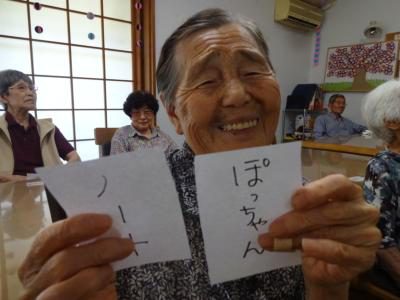 ぽっちゃん
ノート